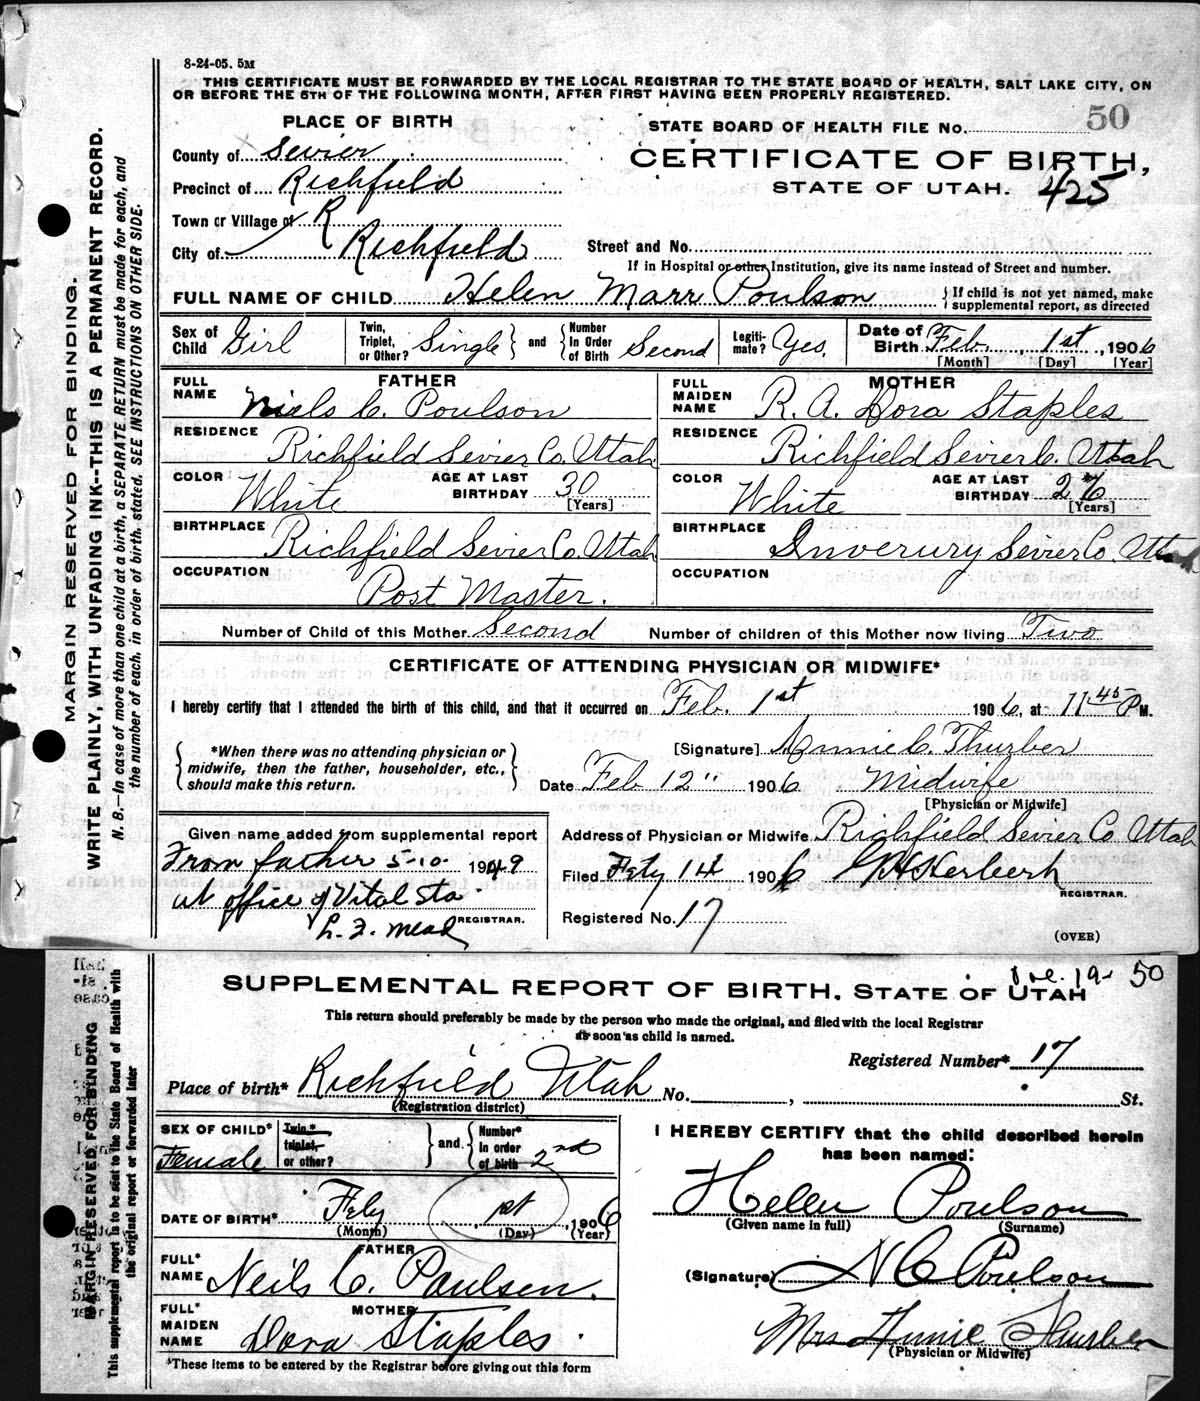 8-24-05. 5M
THIS CERTIFICATE MUST BE FORWARDED BY THE LOCAL REGISTRAR TO THE STATE BOARD OF HEALTH, SALT LAKE CITY, ON
OR BEFORE THE 5TH OF THE FOLLOWING MONTH, AFTER FIRST HAVING BEEN PROPERLY REGISTERED.
PLACE OF BIRTH
STATE BOARD OF HEALTH FILE No. 50
County of Sevier
CERTIFICATE OF BIRTH,
Precinct of Richfield
STATE OF UTAH. 425
Town or Village of R
City of Richfield
Street and No.
If in Hospital or other Institution, give its name instead of Street and number.
FULL NAME OF CHILD Helen Marr Poulson } If child is not yet named, make supplemental report, as directed
Sex of Child Girl Twin, Triplet, or Other? Single } and { Number In Order of Birth Second Legiti-mate? Yes. Date of Birth Feb. 1st, 1906
[Month] [Day] [Year]
FATHER MOTHER
FULL NAME Niels C. Poulson FULL MAIDEN NAME R. A. Dora Staples
RESIDENCE Richfield Sevier Co. Utah RESIDENCE Richfield Sevier C. Utah
COLOR White AGE AT LAST BIRTHDAY 30 [Years] COLOR White AGE AT LAST BIRTHDAY 26 [Years]
BIRTHPLACE Richfield Sevier Co. Utah BIRTHPLACE Inverury Sevier Co. Utah
OCCUPATION Post Master. OCCUPATION
Number of Child of this Mother Second Number of children of this Mother now living Two
CERTIFICATE OF ATTENDING PHYSICIAN OR MIDWIFE*
I hereby certify that I attended the birth of this child, and that it occurred on Feb. 1st 1906, at 11 45 P M.
{ *When there was no attending physician or midwife, then the father, householder, etc., should make this return. }
[Signature] Annie C. Thurber
Date Feb 12" 1906 Midwife
[Physician or Midwife]
Given name added from supplemental report
Address of Physician or Midwife Richfield Sevier Co Utah
From father 5-10- 1949
Filed Feby 14 1906
REGISTRAR.
at office of Vital Sta
L. F. Mead REGISTRAR.
Registered No. 17
(OVER)
MARGIN RESERVED FOR BINDING.
WRITE PLAINLY, WITH UNFADING INK--THIS IS A PERMANENT RECORD.
N. B.—In case of more than one child at a birth, a SEPARATE RETURN must be made for each, and
the number of each, in order of birth, stated. SEE INSTRUCTIONS ON OTHER SIDE.
19- 50
SUPPLEMENTAL REPORT OF BIRTH, STATE OF UTAH
This return should preferably be made by the person who made the original, and filed with the local Registrar
as soon as child is named.
Registered Number* 17
Place of birth* Richfield Utah No. , St.
(Registration district)
SEX OF CHILD* Female Twin,* triplet, or other? } and { Number* in order of birth 2nd
I HEREBY CERTIFY that the child described herein
has been named:
Helen Poulson
(Given name in full) (Surname)
DATE OF BIRTH* Feby 1st, 1906
(Month) (Day) (Year)
FATHER
FULL* NAME Neils C. Paulsen.
(Signature) N C Poulson
MOTHER
FULL* MAIDEN NAME Dora Staples.
Mrs Annie Thurber
(Physician or Midwife)
*These items to be entered by the Registrar before giving out this form
MARGIN RESERVED FOR BINDING
This supplemental report is to be sent to the State Board of Health with
the original report or forwarded later